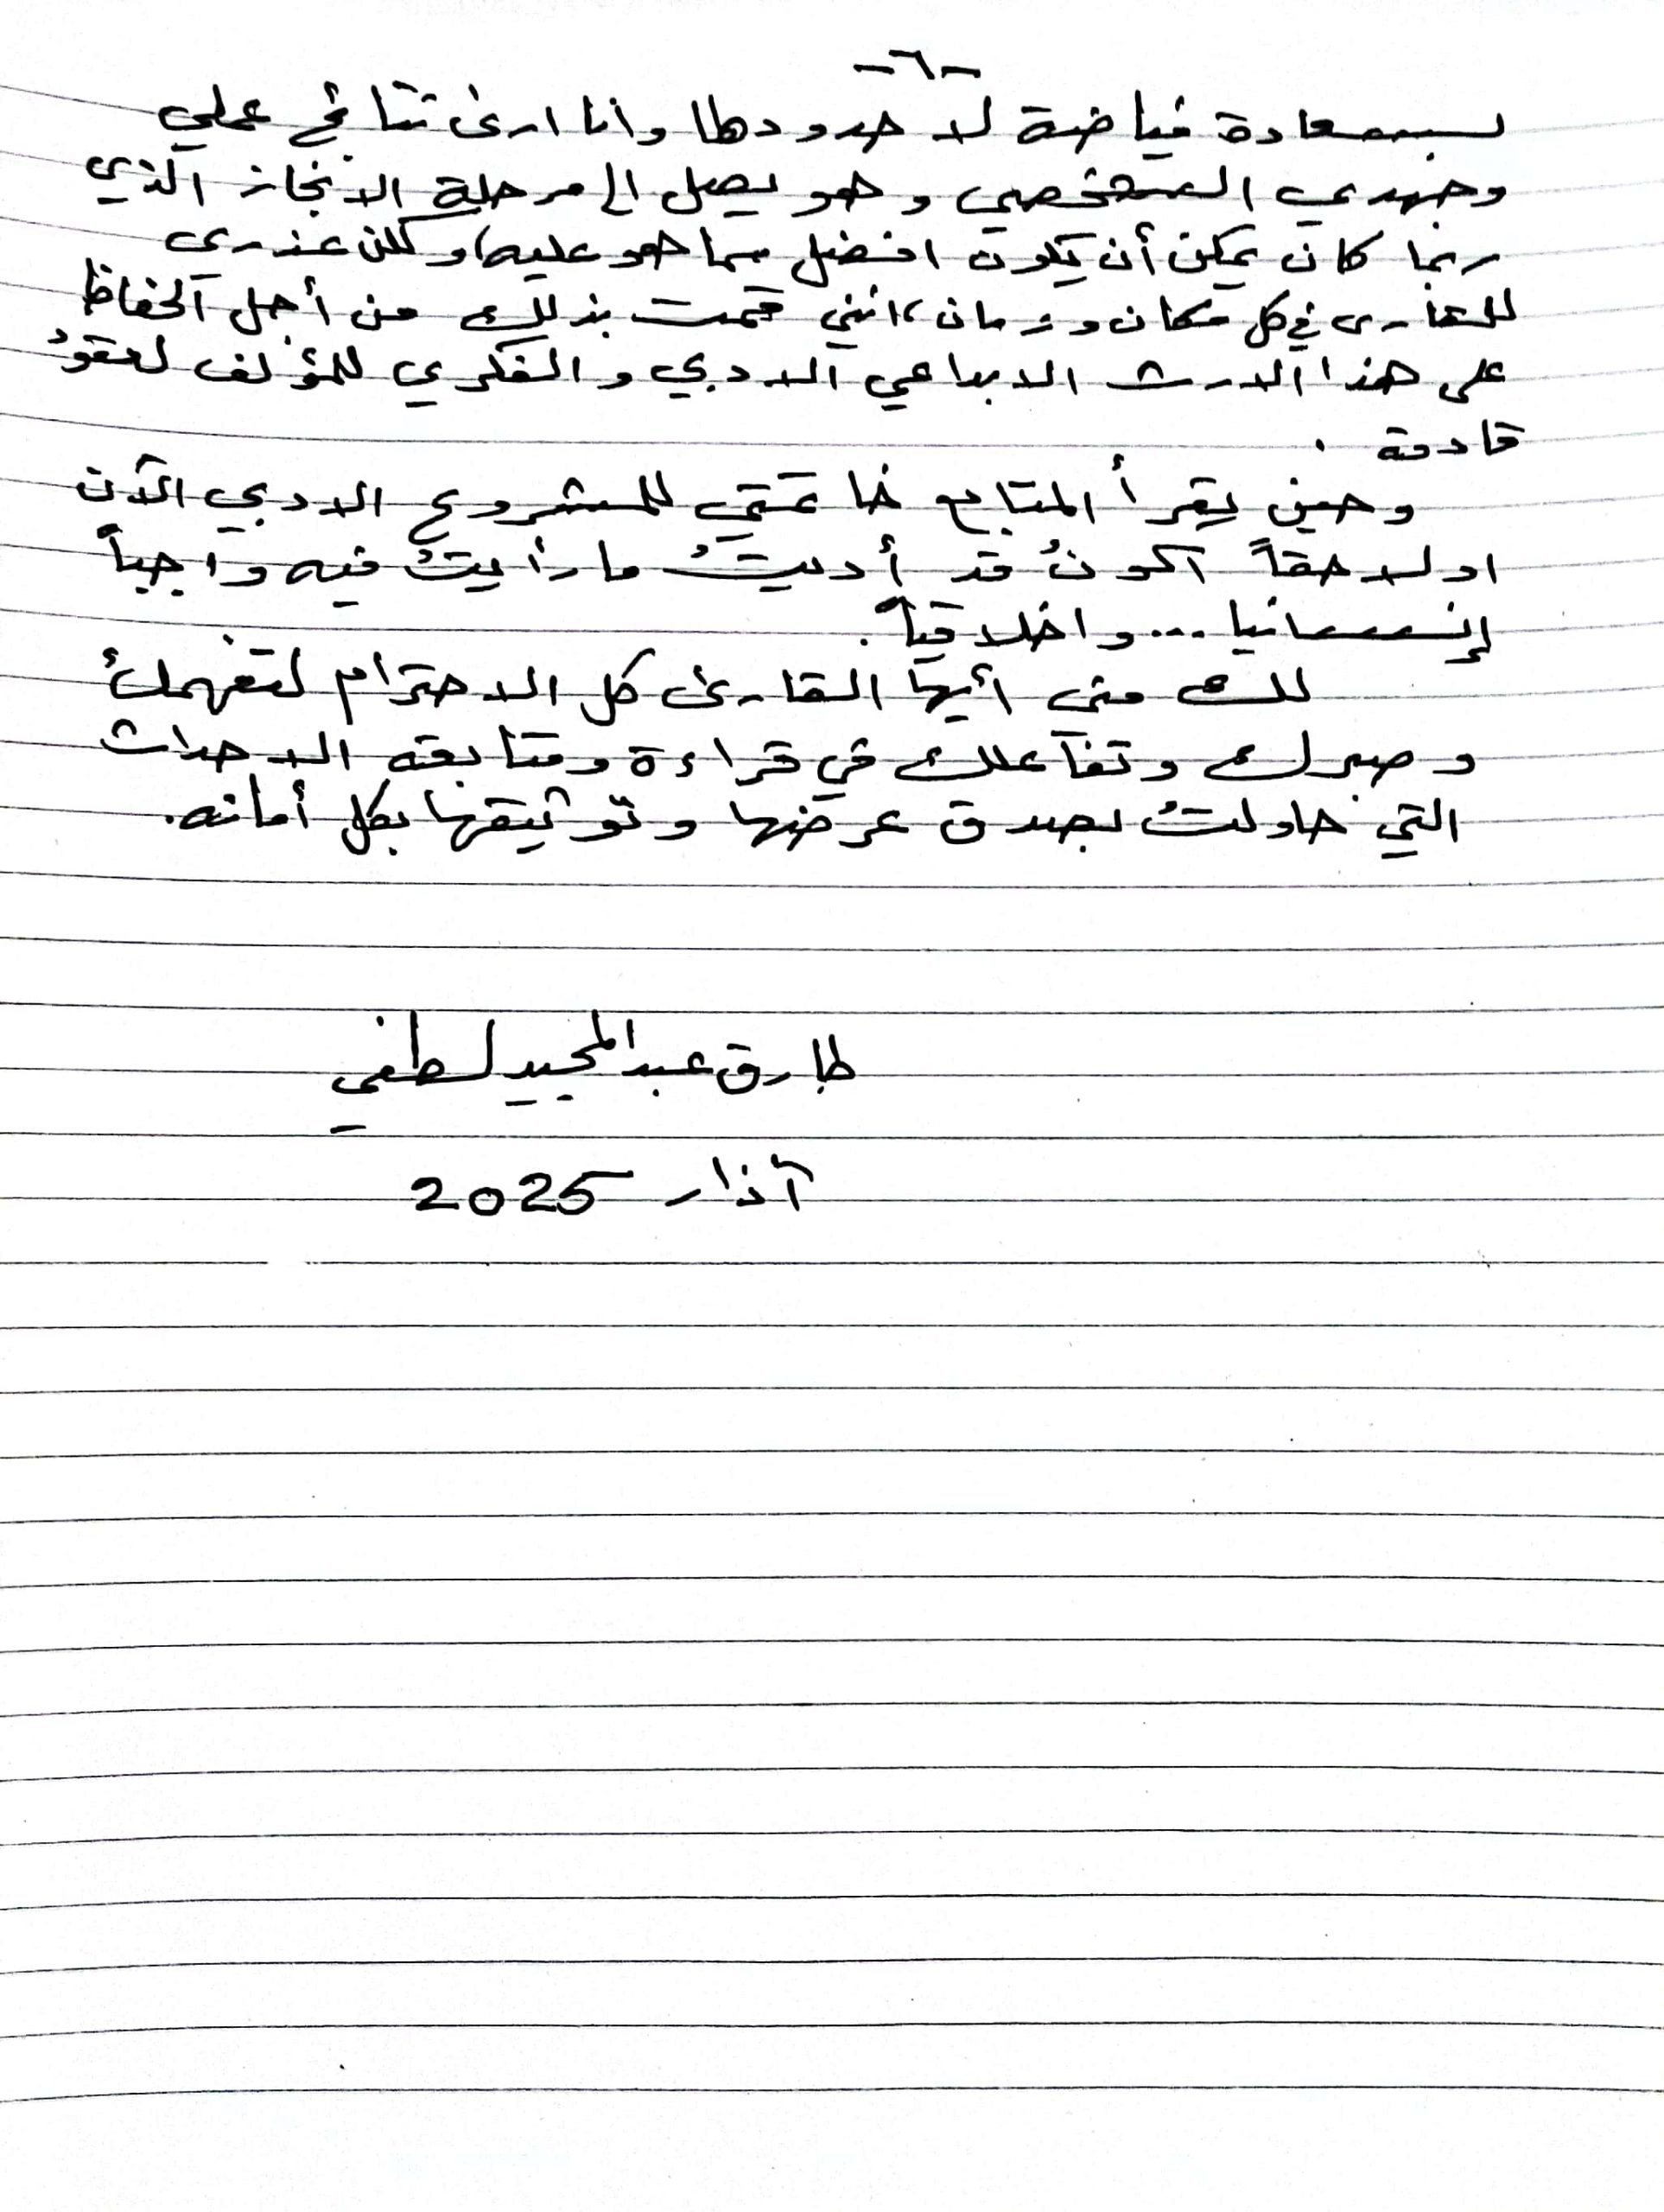 -٦-
بسعادة فياضة لا حدود لها وانا ارى نتائج عملي
وجهدي الشخصي وهو يصل الى مرحلة الانجاز الذي
ربما كان يمكن أن يكون افضل مما هو عليه، ولكن عذري
للقارىء في كل مكان وزمان، انني قمت بذلك من أجل الحفاظ
على هذا الارث الابداعي الادبي والفكري للمؤلف لعقودٍ
قادمة .
وحين يقرأ المتابع خاتمتي للمشروع الادبي الآن
او لاحقاً أكونُ قد أديتُ ما رأيتُ فيه واجباً
إنسانيا ... واخلاقياً.
لك مني أيها القارىء كل الاحترام لتفهمك
وصبرك وتفاعلك في قراءة ومتابعة الاحداث
التي حاولتُ بصدق عرضها وتوثيقها بكل أمانه.
طارق عبد المجيد لطفي
آذار 2025